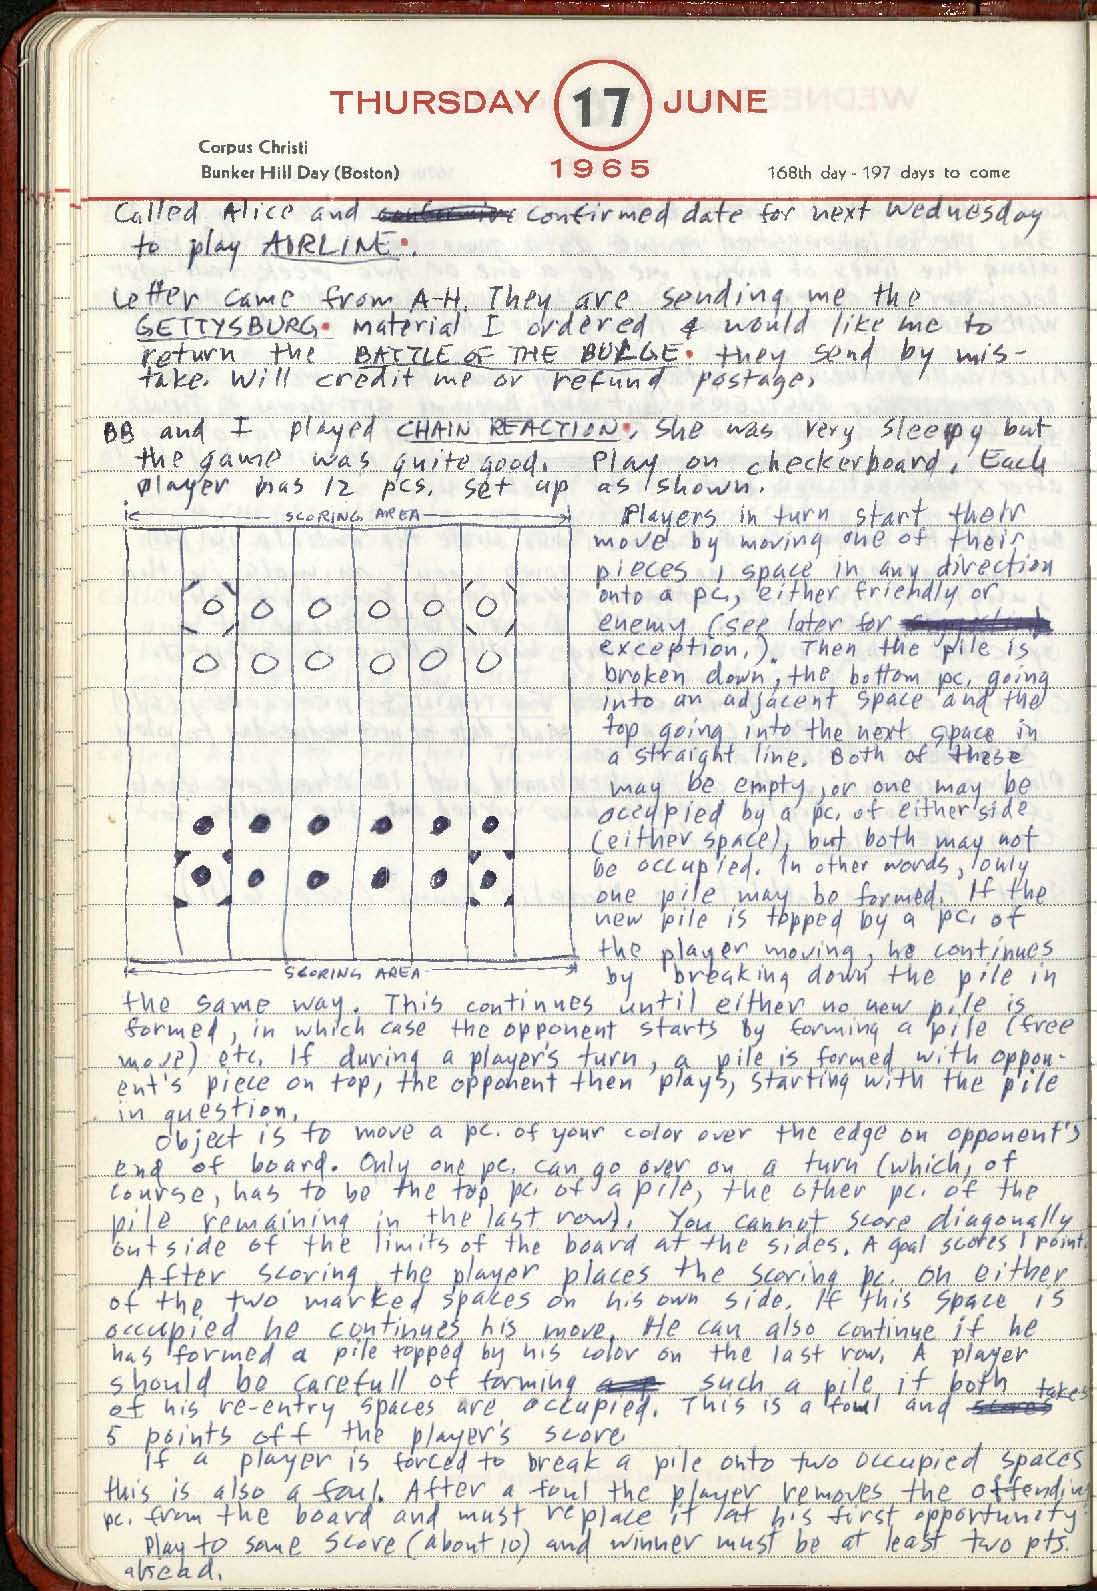 THURSDAY 17 JUNE
1965
Corpus Christi
Bunker Hill Day (Boston)
168th day - 197 days to come
Called Alice and confirmed date for next Wednesday
to play AIRLINE.
Letter came from A-H. They are sending me the
GETTYSBURG material I ordered & would like me to
return the BATTLE OF THE BULGE. they send by mis-
take. Will credit me or refund postage.
BB and I played CHAIN REACTION. She was very sleepy but
the game was quite good. Play on checkerboard. Each
player has 12 pcs. set up as shown.
SCORING AREA
Players in turn start their
move by moving one of their
pieces 1 space in any direction
onto a pc, either friendly or
enemy (see later for
exception.). Then the pile is
broken down, the bottom pc. going
into an adjacent space and the
top going into the next space in
a straight line. Both of these
may be empty, or one may be
occupied by a pc. of either side
(either space), but both may not
be occupied. In other words, only
one pile may be formed. If the
new pile is topped by a pc. of
the player moving, he continues
by breaking down the pile in
SCORING AREA
the same way. This continues until either no new pile is
formed, in which case the opponent starts by forming a pile (free
move) etc. If during a player's turn, a pile is formed with oppon-
ent's piece on top, the opponent then plays, starting with the pile
in question.
Object is to move a pc. of your color over the edge on opponent's
end of board. Only one pc. can go over on a turn (which, of
course, has to be the top pc. of a pile, the other pc. of the
pile remaining in the last row). You cannot score diagonally
outside of the limits of the board at the sides. A goal scores 1 point.
After scoring, the player places the scoring pc. on either
of the two marked spaces on his own side. If this space is
occupied he continues his move. He can also continue if he
has formed a pile topped by his color on the last row. A player
should be carefull of forming such a pile if both
of his re-entry spaces are occupied. This is a foul and takes
5 points off the player's score.
If a player is forced to break a pile onto two occupied spaces
this is also a foul. After a foul the player removes the offending
pc. from the board and must replace it at his first opportunity.
Play to some score (about 10) and winner must be at least two pts.
ahead.